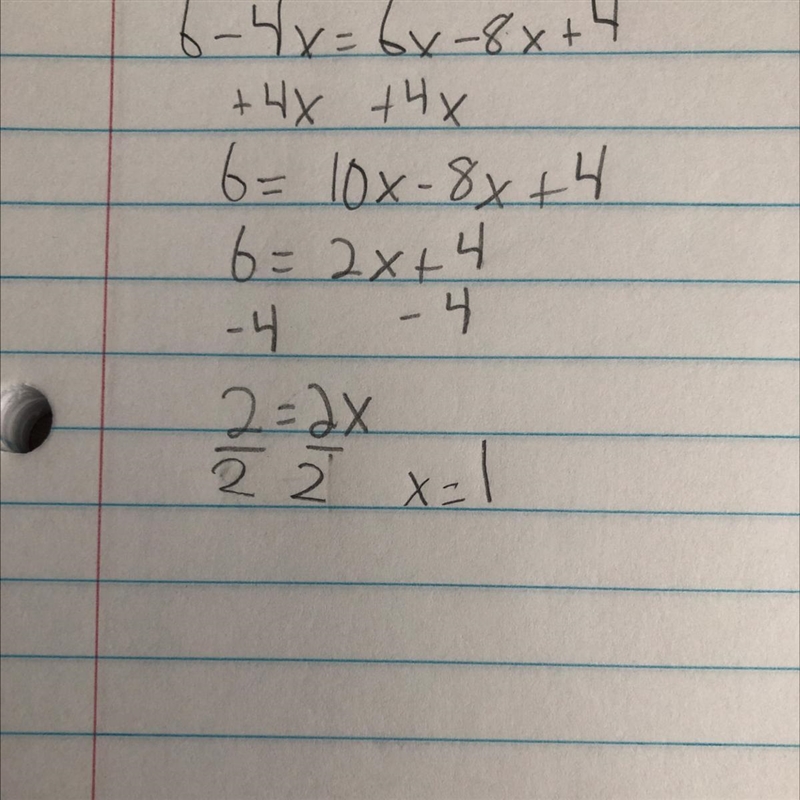 6-4x=6x-8x+4
+4x +4x
6= 10x-8x+4
6= 2x+4
-4 -4
2=2x
2 2 x=1